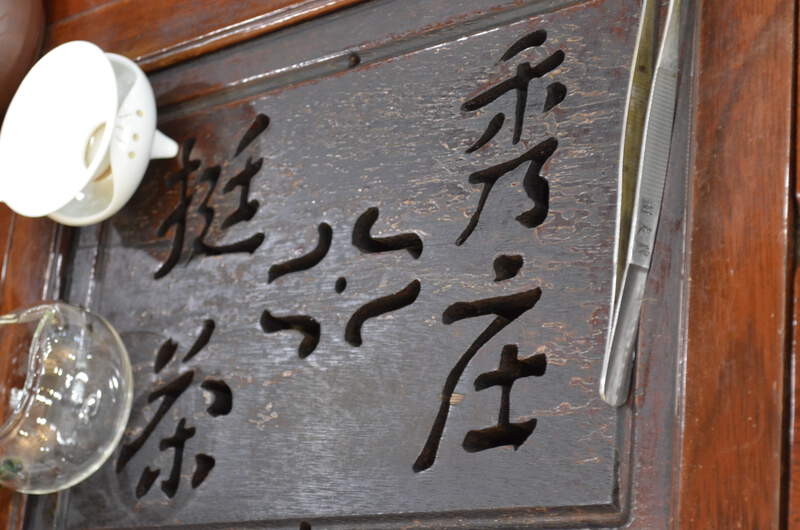 挺秀
茶庄